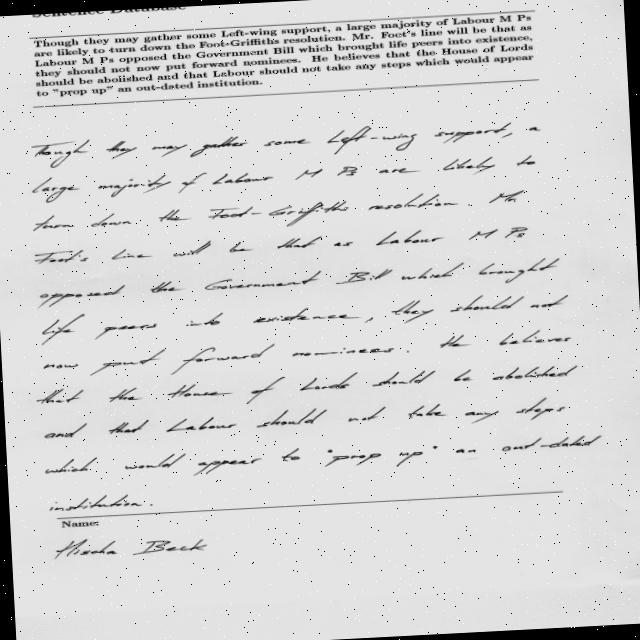 Sentence Database
Though they may gather some Left-wing support, a large majority of Labour M Ps
are likely to turn down the Foot-Griffiths resolution. Mr. Foot's line will be that as
Labour M Ps opposed the Government Bill which brought life peers into existence,
they should not now put forward nominees. He believes that the House of Lords
should be abolished and that Labour should not take any steps which would appear
to "prop up" an out-dated institution.
Though they may gather some Left-wing support, a
large majority of Labour M Ps are likely to
turn down the Foot-Griffiths resolution. Mr.
Foot's line will be that as Labour M Ps
opposed the Government Bill which brought
life peers into existence, they should not
now put forward nominees. He believes
that the House of Lords should be abolished
and that Labour should not take any steps
which would appear to "prop up" an out-dated
institution.
Name:
Mischa Beck